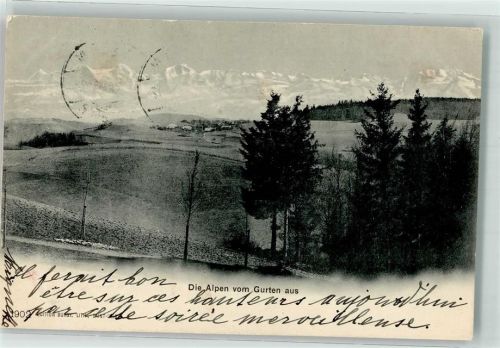 Die Alpen vom Gurten aus
Il ferait bon
être sur ces hauteurs aujourd'hui
par cette soirée merveilleuse.